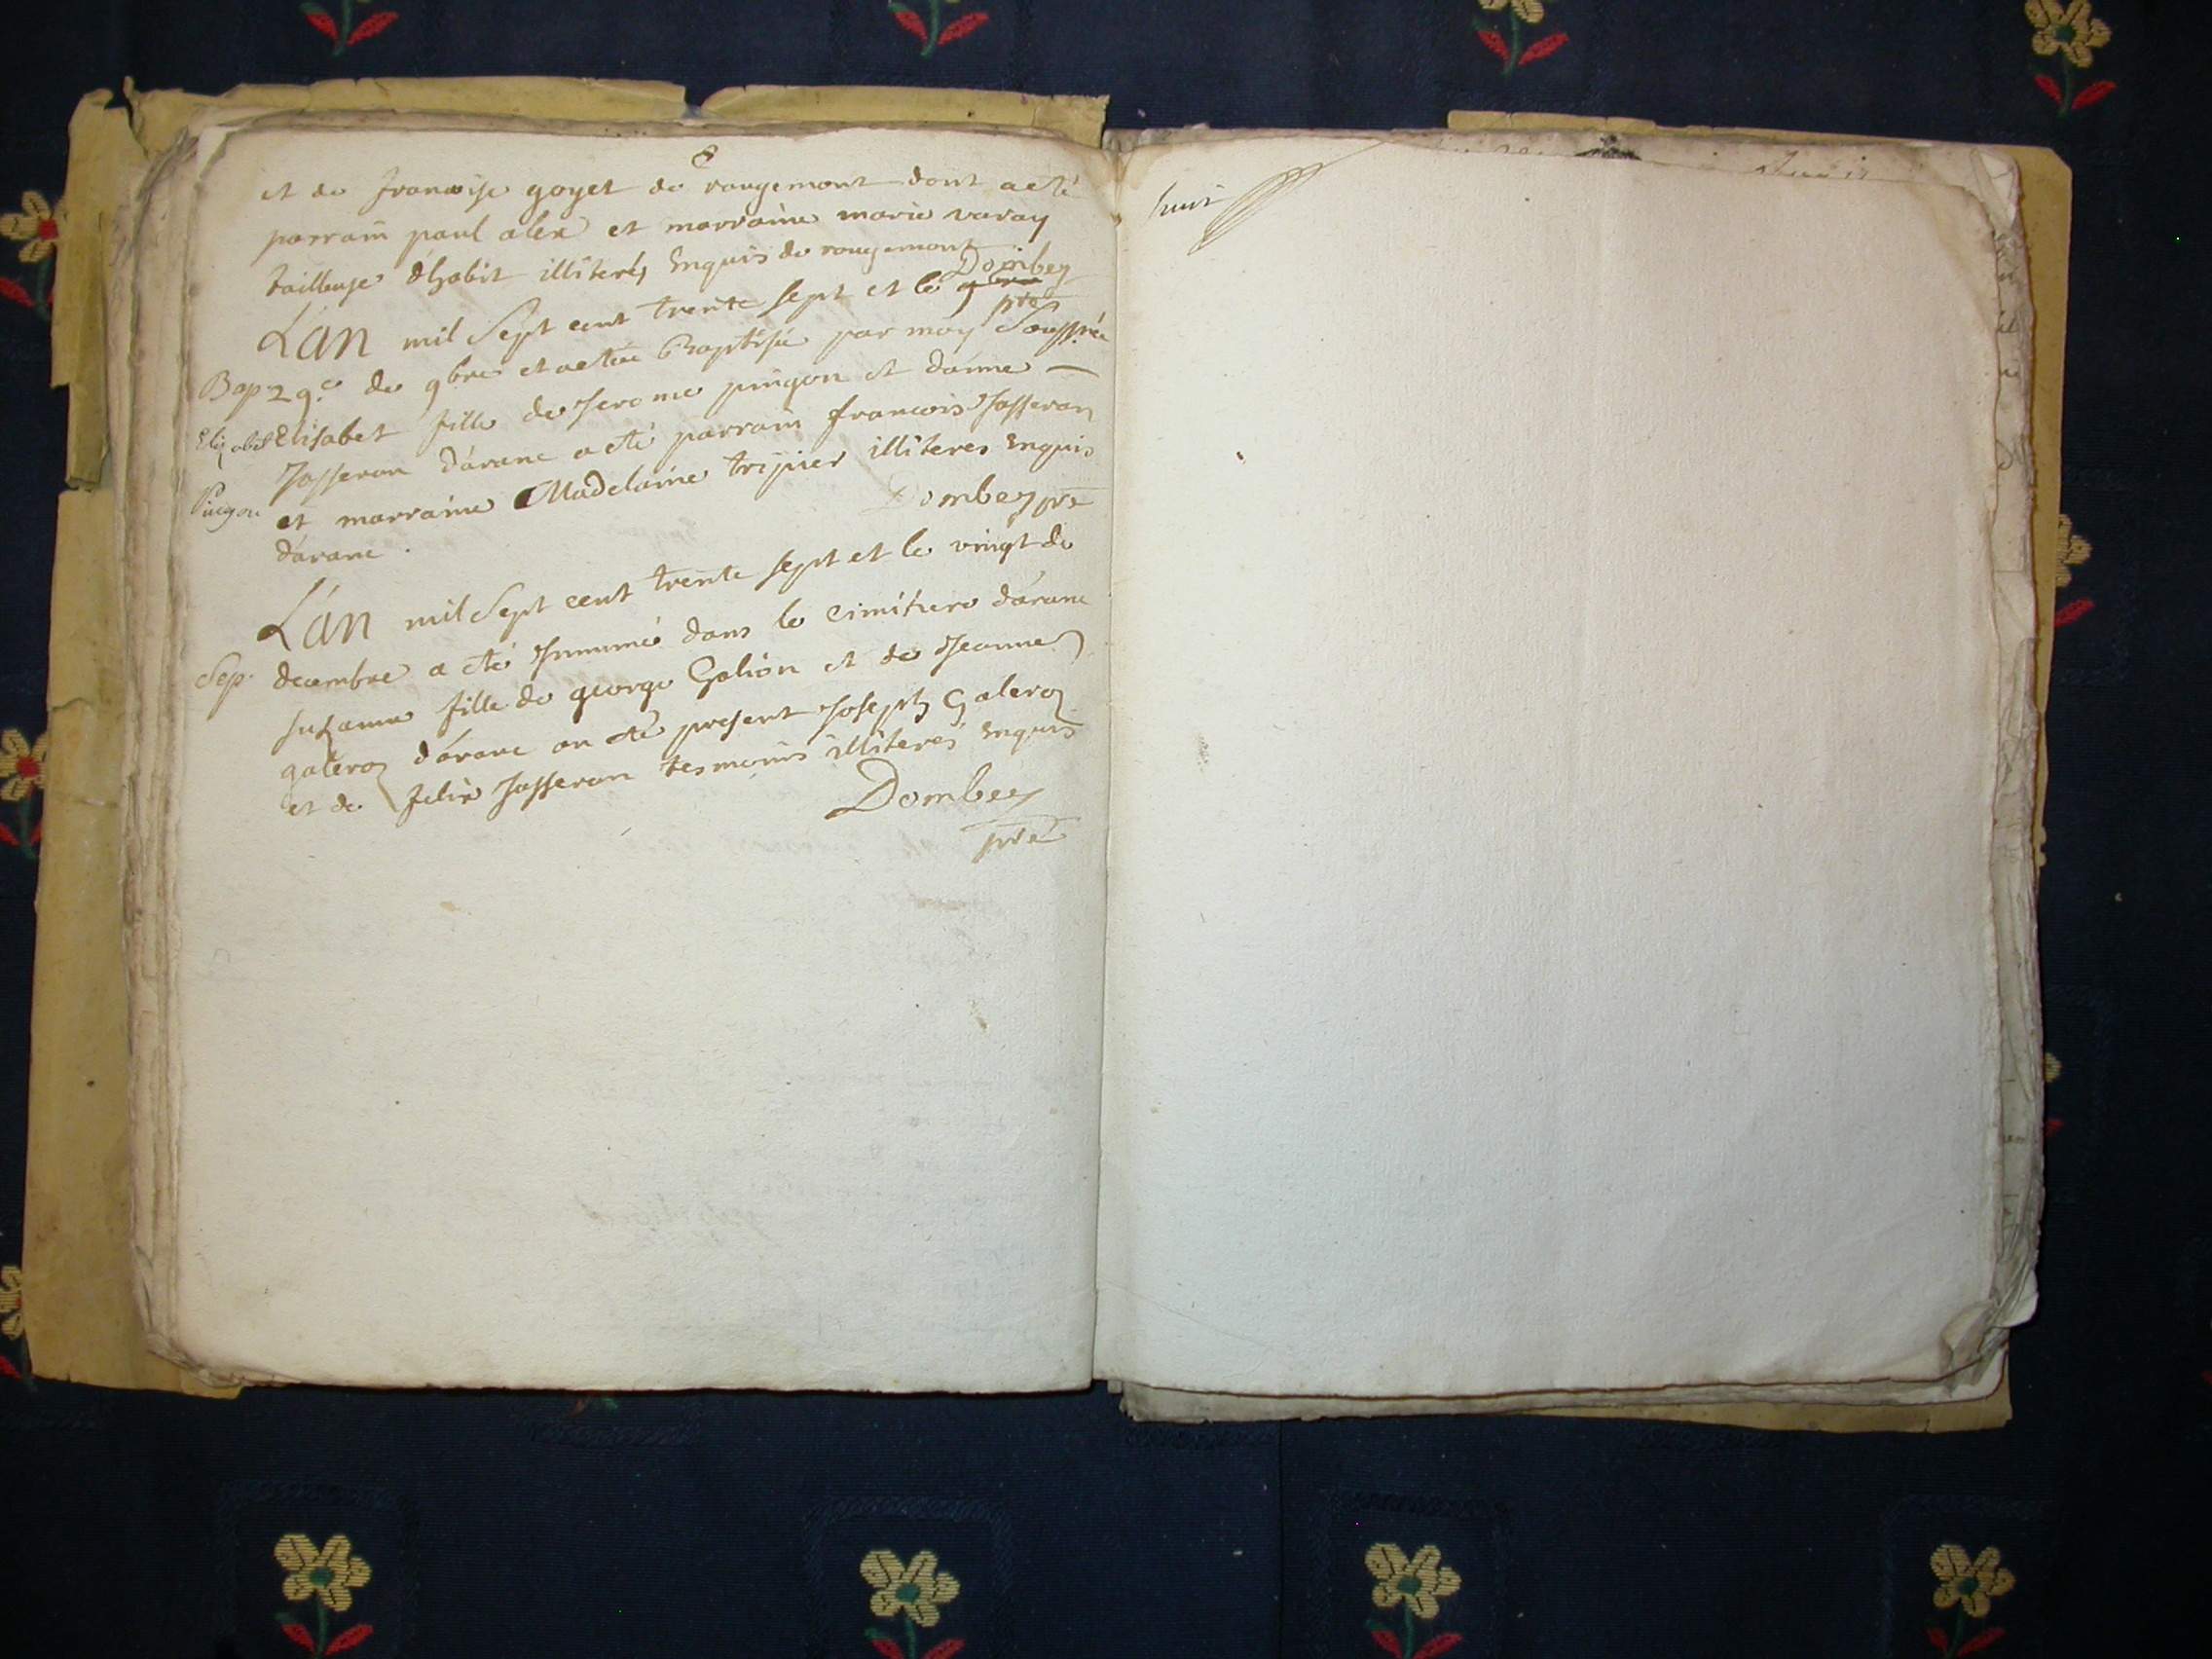 8
et de francoise goyet de rougemont dont a eté
parrain paul alex et marraine marie varay
tailleuse d'habit illiterés Enquis de rougemont
Dombey
pre
L'an mil Sept cent trente sept et le
Bap. 29e de 9bre et a etée Baptisée par moy Soussné
Elizabet Elisabet fille de Jerome pingon et d'anne
Josseran d'aranc a eté parrain francois Josseran
Pingon et marraine Madelaine tripier illiteres Enquis
d'aranc.
Dombey pre
L'an mil Sept cent trente sept et le vingt de
Sep. decembre a eté Innumé dans le cimitiere d'aranc
suzanne fille de george Golion et de Jeanne
galeroz d'aranc on eté present Joseph Galeroz
et de felix Josseran tesmoins illiterés Enquis
Dombey
pre
huit